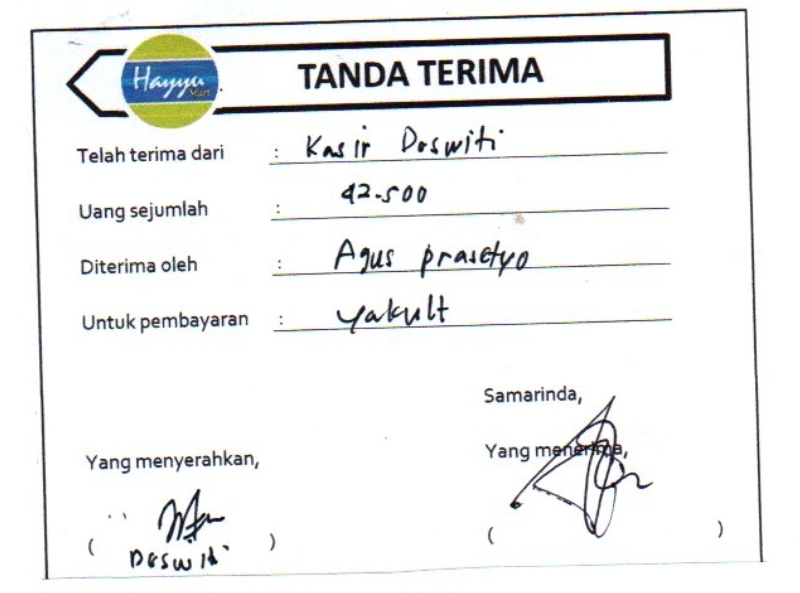 Hayyu
Mart
TANDA TERIMA
Telah terima dari : Kasir Deswiti
Uang sejumlah : 42.500
Diterima oleh : Agus prasetyo
Untuk pembayaran : yakult
Samarinda,
Yang menyerahkan, Yang menerima,
( Deswiti ) ( )